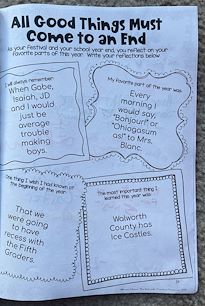 All Good Things Must
Come to an End
As your Festival and your school year end, you reflect on your
favorite parts of this year. Write your reflections below
I will always remember:
When Gabe,
Isaiah, JD
and I would
just be
average
trouble
making
boys.
My favorite part of the year was:
Every
morning I
would say
"Bonjour!" or
"Ohiogasum
as!" to Mrs.
Blanc.
One thing I wish I had known at
the beginning of the year:
That we
were going
to have
recess with
the Fifth
Graders.
The most important thing I
learned this year was:
Walworth
County has
Ice Castles.